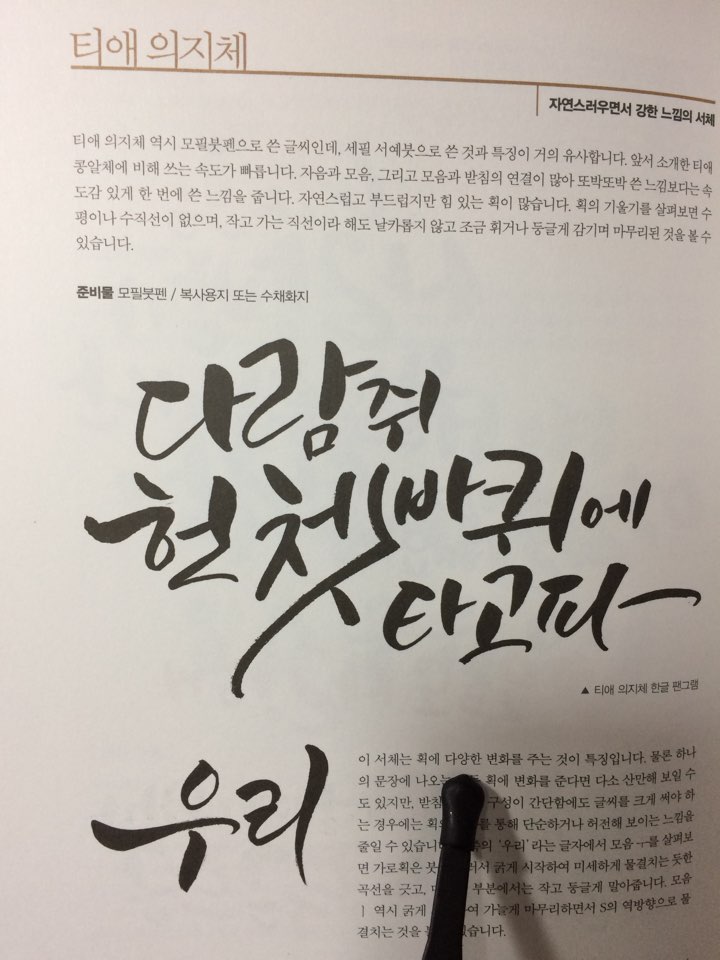 티애 의지체
자연스러우면서 강한 느낌의 서체
티애 의지체 역시 모필붓펜으로 쓴 글씨인데, 세필 서예붓으로 쓴 것과 특징이 거의 유사합니다. 앞서 소개한 티애
콩알체에 비해 쓰는 속도가 빠릅니다. 자음과 모음, 그리고 모음과 받침의 연결이 많아 또박또박 쓴 느낌보다는 속
도감 있게 한 번에 쓴 느낌을 줍니다. 자연스럽고 부드럽지만 힘 있는 획이 많습니다. 획의 기울기를 살펴보면 수
평이나 수직선이 없으며, 작고 가는 직선이라 해도 날카롭지 않고 조금 휘거나 둥글게 감기며 마무리된 것을 볼 수
있습니다.
준비물 모필붓펜 / 복사용지 또는 수채화지
다람쥐
헌 쳇바퀴에
타고파
▲ 티애 의지체 한글 팬그램
우리
이 서체는 획에 다양한 변화를 주는 것이 특징입니다. 물론 하나
의 문장에 나오는 획에 변화를 준다면 다소 산만해 보일 수
도 있지만, 구성이 간단함에도 글씨를 크게 써야 하
는 경우에는 통해 단순하거나 허전해 보이는 느낌을
줄일 수 있습니다. '우리'라는 글자에서 모음 ㅜ를 살펴보
면 가로획은 굵게 시작하여 미세하게 물결치는 듯한
곡선을 긋고, 부분에서는 작고 둥글게 말아줍니다. 모음
ㅣ 역시 굵게 가늘게 마무리하면서 S의 역방향으로 물
결치는 것을 있습니다.